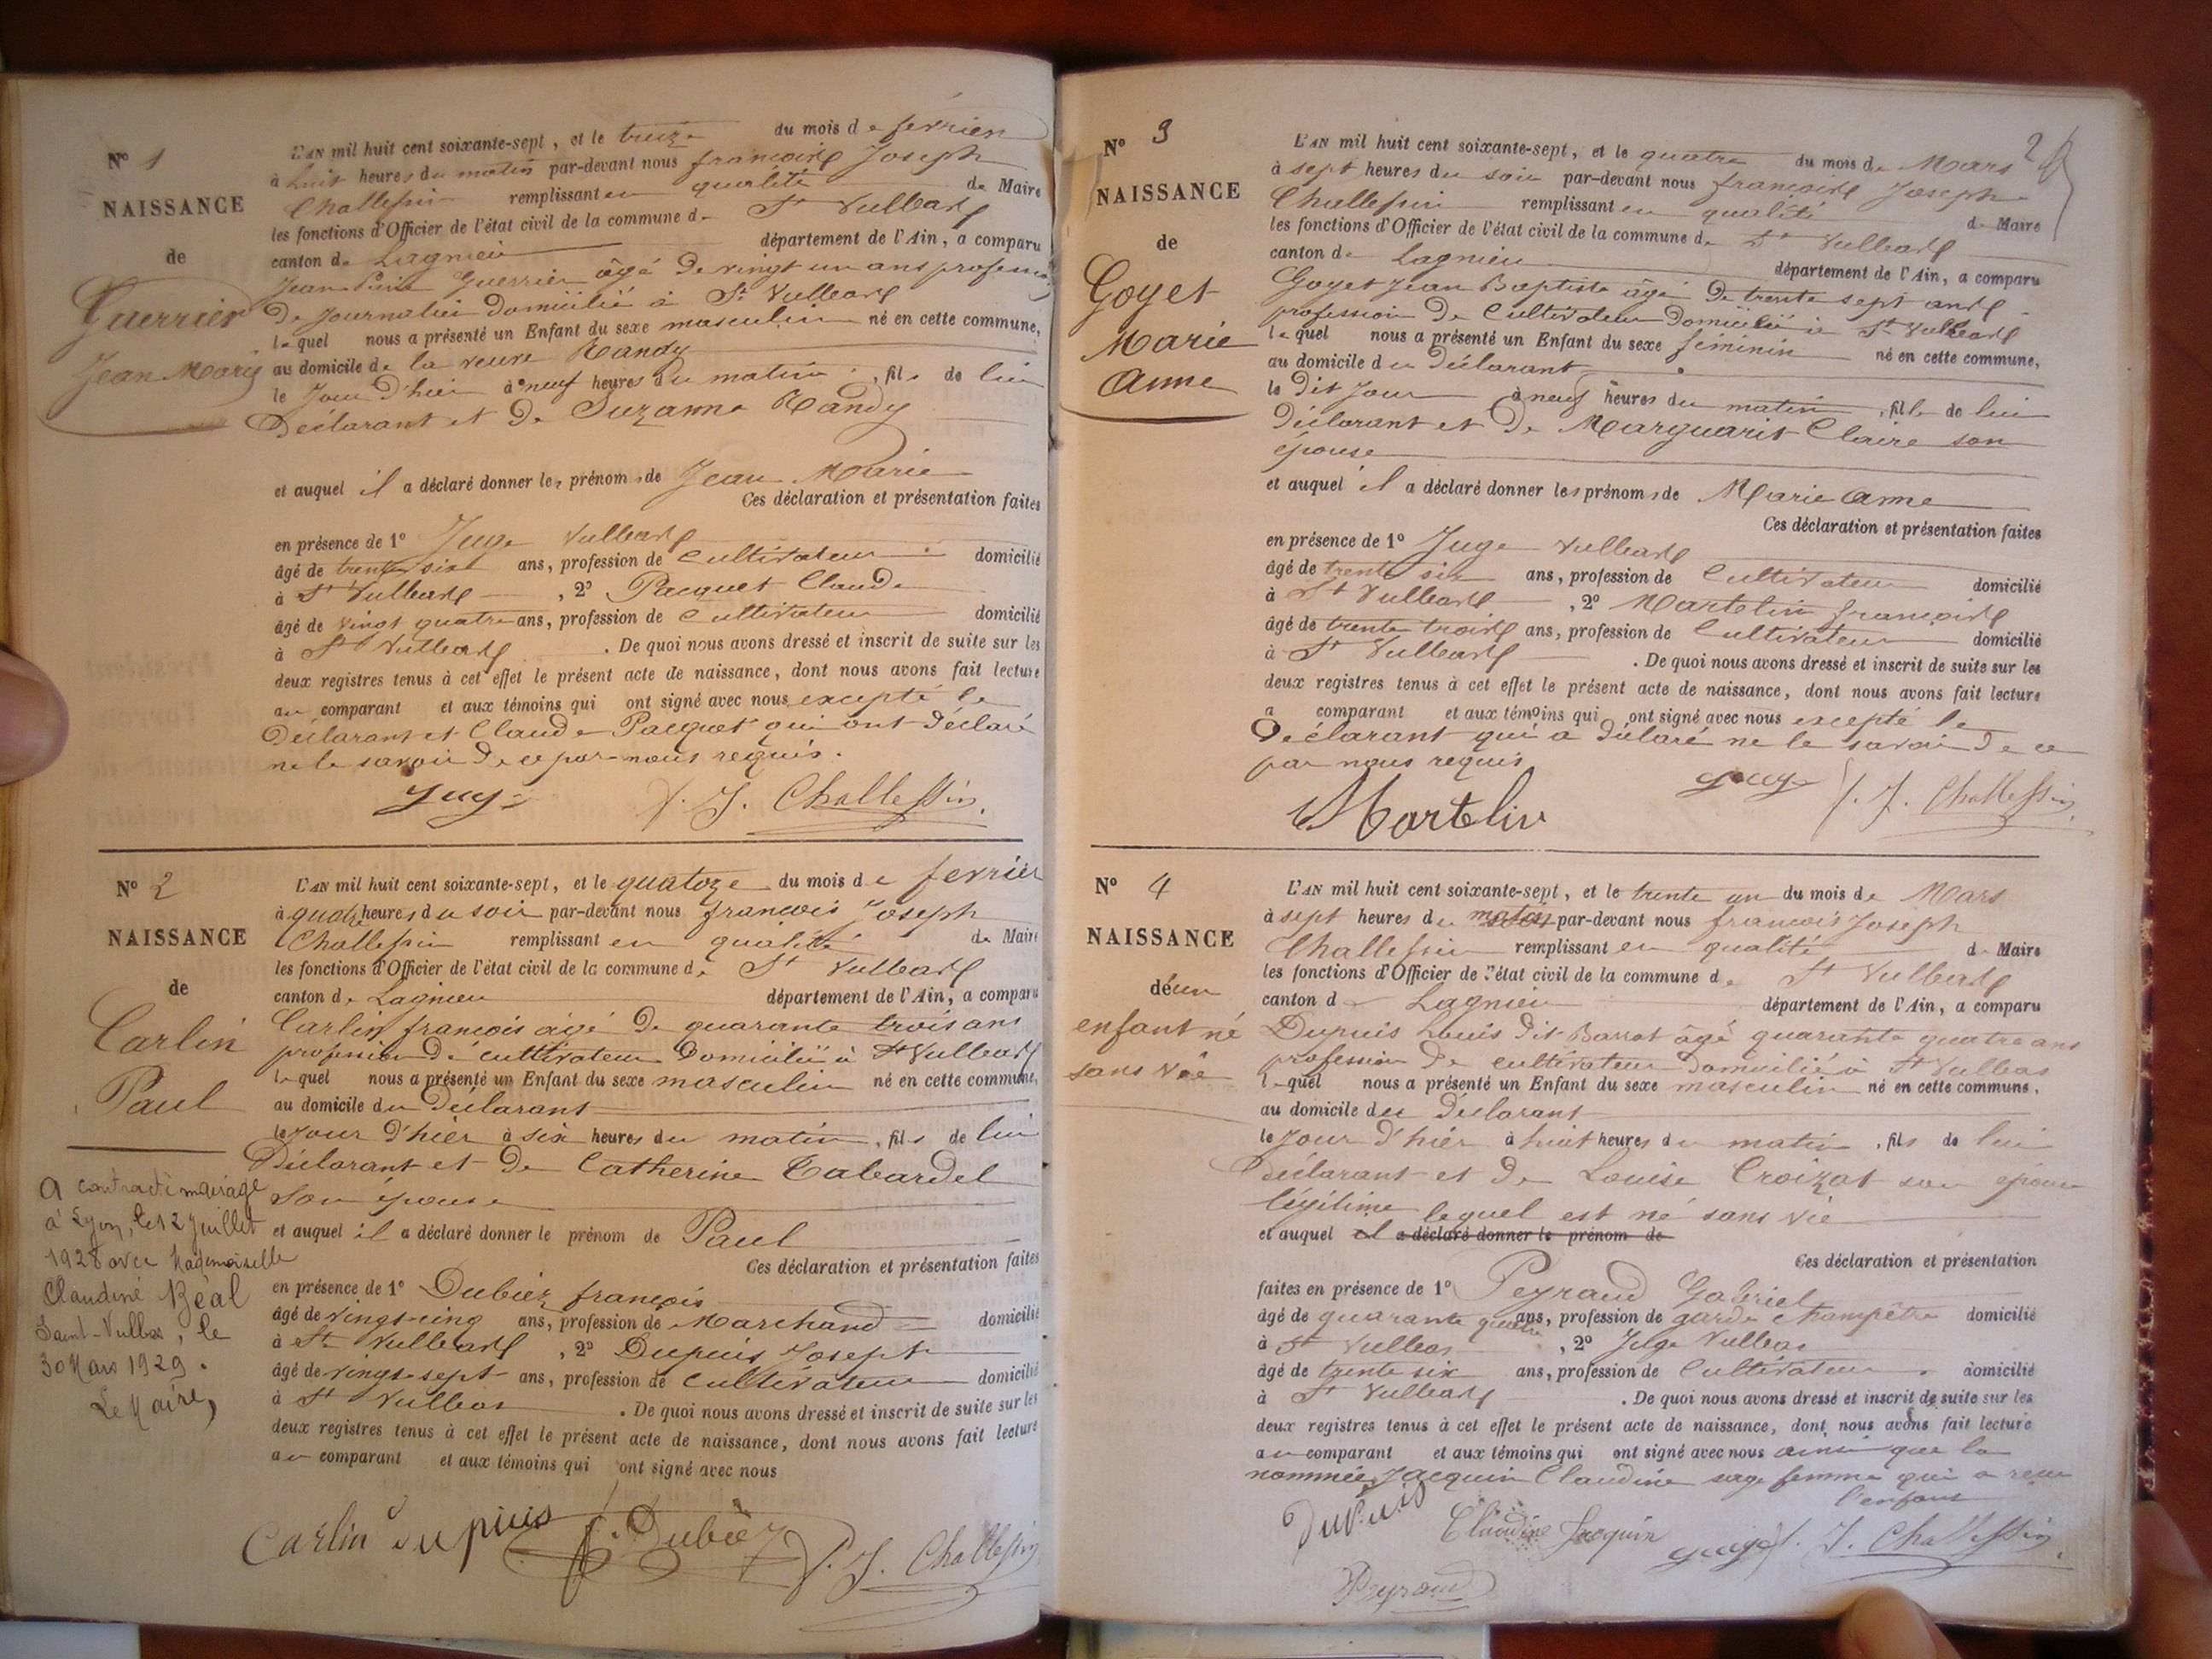 N° 1
NAISSANCE
de
Guerrier
Jean Marie
L'AN mil huit cent soixante-sept, et le treize du mois de fevrier
à huit heures du matin par-devant nous françois Joseph
Challessin remplissant en qualité de Maire
les fonctions d'Officier de l'état civil de la commune de St Vulbas
canton de Lagnieu département de l'Ain, a comparu
Jean Pierre Guerrier âgé de vingt un ans profession
de Journalier domicilié à St Vulbas
lequel nous a présenté un Enfant du sexe masculin né en cette commune,
au domicile de la veuve Randy
le Jour d'hier à neuf heures du matin, fils de lui
Déclarant et de Suzanne Randy
et auquel il a déclaré donner les prénoms de Jean Marie
Ces déclaration et présentation faites
en présence de 1° Juge Vulbas
âgé de trente six ans, profession de Cultivateur domicilié
à St Vulbas, 2° Pacquet Claude
âgé de vingt quatre ans, profession de Cultivateur domicilié
à St Vulbas. De quoi nous avons dressé et inscrit de suite sur les
deux registres tenus à cet effet le présent acte de naissance, dont nous avons fait lecture
au comparant et aux témoins qui ont signé avec nous excepté le
Déclarant et Claude Pacquet qui ont déclaré
ne le savoir de ce par nous requis.
Juge F. J. Challessin
N° 2
NAISSANCE
de
Carlin
Paul
A contracté mariage
à Lyon, le 12 Juillet
1928 avec Mademoiselle
Claudine Béal
Saint-Vulbas, le
30 Mars 1929.
Le Maire,
L'AN mil huit cent soixante-sept, et le quatoze du mois de fevrier
à quatre heures du soir par-devant nous françois Joseph
Challessin remplissant en qualité de Maire
les fonctions d'Officier de l'état civil de la commune de St Vulbas
canton de Lagnieu département de l'Ain, a comparu
Carlin françois âgé de quarante trois ans
profession de cultivateur Domicilié à St Vulbas
lequel nous a présenté un Enfant du sexe masculin né en cette commune,
au domicile du Déclarant
le jour d'hier à six heures du matin, fils de lui
Déclarant et de Catherine Tabardel
Son épouse
et auquel il a déclaré donner le prénom de Paul
Ces déclaration et présentation faites
en présence de 1° Dubiez françois
âgé de vingt-cinq ans, profession de Marchand domicilié
à St Vulbas, 2° Dupuis Joseph
âgé de vingt-sept ans, profession de Cultivateur domicilié
à St Vulbas. De quoi nous avons dressé et inscrit de suite sur les
deux registres tenus à cet effet le présent acte de naissance, dont nous avons fait lecture
au comparant et aux témoins qui ont signé avec nous
Carlin dupuis f. Dubiez F. J. Challessin
2
N° 3
NAISSANCE
de
Goyet
Marie
Anne
L'AN mil huit cent soixante-sept, et le quatre du mois de Mars
à sept heures du soir par-devant nous françois Joseph
Challessin remplissant en qualité de Maire
les fonctions d'Officier de l'état civil de la commune de St Vulbas
canton de Lagnieu département de l'Ain, a comparu
Goyet Jean Baptiste âgé de trente sept ans
profession de Cultivateur Domicilié à St Vulbas
lequel nous a présenté un Enfant du sexe féminin né en cette commune,
au domicile du Déclarant
le dit Jour à neuf heures du matin, fille de lui
Déclarant et de Marguarit Claire son
épouse
et auquel il a déclaré donner les prénoms de Marie Anne
Ces déclaration et présentation faites
en présence de 1° Juge Vulbas
âgé de trente six ans, profession de Cultivateur domicilié
à St Vulbas, 2° Martelin françois
âgé de trente trois ans, profession de Cultivateur domicilié
à St Vulbas. De quoi nous avons dressé et inscrit de suite sur les
deux registres tenus à cet effet le présent acte de naissance, dont nous avons fait lecture
a comparant et aux témoins qui ont signé avec nous excepté le
Déclarant qui a déclaré ne le savoir de ce
par nous requis
Martelin Juge F. J. Challessin
N° 4
NAISSANCE
de un
enfant né
sans vie
L'AN mil huit cent soixante-sept, et le trente un du mois de Mars
à sept heures du matin par-devant nous francois Joseph
Challessin remplissant en qualité de Maire
les fonctions d'Officier de l'état civil de la commune de St Vulbas
canton de Lagnieu département de l'Ain, a comparu
Dupuis Louis dit Barrat âgé quarante quatre ans
profession de cultivateur domicilié à St Vulbas
lequel nous a présenté un Enfant du sexe masculin né en cette commune,
au domicile du Déclarant
le jour d'hier à huit heures du matin, fils de lui
déclarant et de Louise Croizat son épouse
légitime lequel est né sans vie
et auquel il a déclaré donner le prénom de
Ces déclaration et présentation
faites en présence de 1° Peyraud Gabriel
âgé de quarante quatre ans, profession de garde champêtre domicilié
à St Vulbas, 2° Juge Vulbas
âgé de trente six ans, profession de Cultivateur domicilié
à St Vulbas. De quoi nous avons dressé et inscrit de suite sur les
deux registres tenus à cet effet le présent acte de naissance, dont nous avons fait lecture
au comparant et aux témoins qui ont signé avec nous ainsi que la
nommée Jacquin Claudine sage femme qui a reçu
l'enfant
Dupuis Claudine Jacquin Juge F. J. Challessin
Peyraud